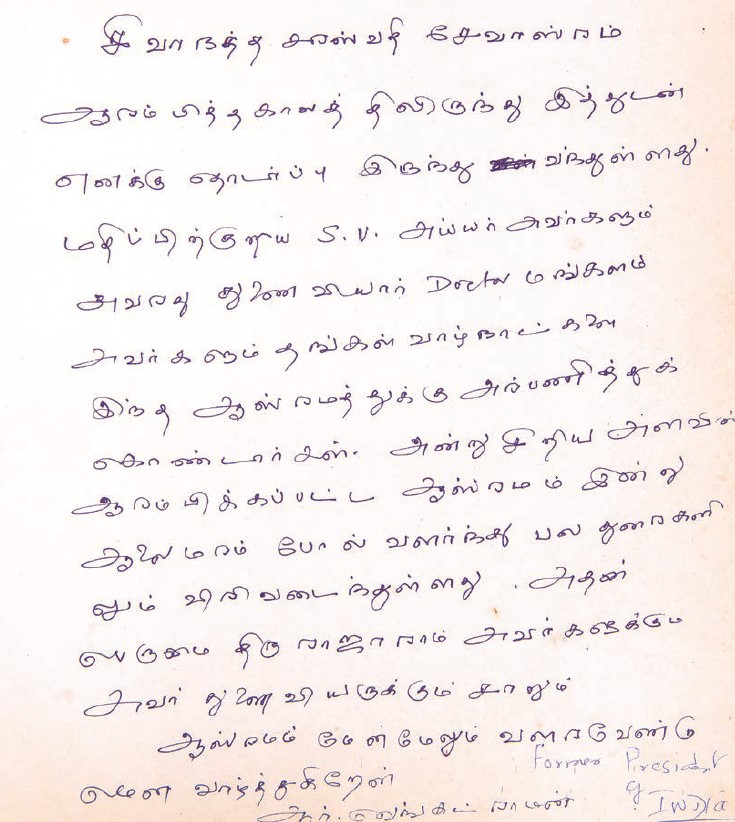 சிவானந்த சரஸ்வதி சேவாஸ்ரமம்
ஆரம்பித்த காலத்திலிருந்து இத்துடன்
எனக்கு தொடர்பு இருந்து வந்துள்ளது.
மதிப்பிற்குரிய S.V. அய்யர் அவர்களும்
அவரது துணைவியார் Doctor மங்களம்
அவர்களும் தங்கள் வாழ்நாட்களை
இந்த ஆஸ்ரமத்துக்கு அர்பணித்துக்
கொண்டார்கள். அன்று சிறிய அளவில்
ஆரம்பிக்கப்பட்ட ஆஸ்ரமம் இன்று
ஆலமரம் போல் வளர்ந்து பல துறைகளி
லும் விரிவடைந்துள்ளது. அதன்
பெருமை திரு ராஜாராம் அவர்களுக்கும்
அவர் துணைவியருக்கும் சாரும்
ஆஸ்ரமம் மேன்மேலும் வளரவேண்டு
மென வாழ்த்துகிறேன்
ஆர். வெங்கட்ராமன்
Former President
of INDIA